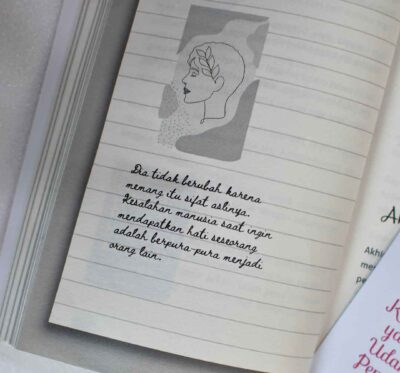 Dia tidak berubah karena
memang itu sifat aslinya.
Kesalahan manusia saat ingin
mendapatkan hati seseorang
adalah berpura-pura menjadi
orang lain.
A
Akh
me
pe
K
ya
Uda
Pe